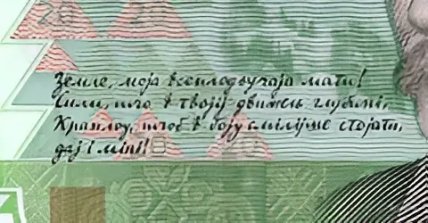 Земле, моя всеплодющая мати!
Сили, що в твоїй движесь глубині,
Краплю, щоб в бою сміліше стояти,
дай і міні!